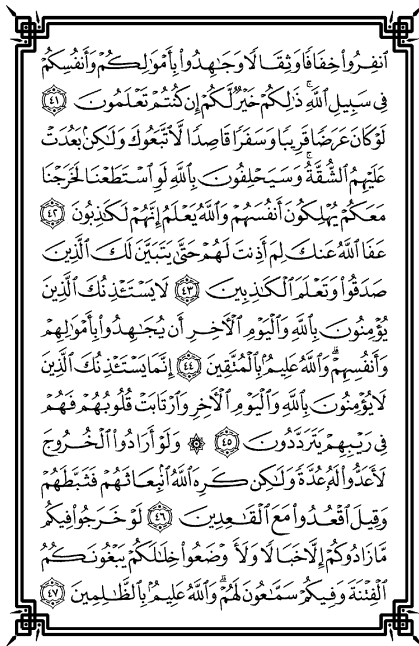 ٱنفِرُواْ خِفَافٗا وَثِقَالٗا وَجَٰهِدُواْ بِأَمۡوَٰلِكُمۡ وَأَنفُسِكُمۡ
فِي سَبِيلِ ٱللَّهِۚ ذَٰلِكُمۡ خَيۡرٞ لَّكُمۡ إِن كُنتُمۡ تَعۡلَمُونَ ٤١
لَوۡ كَانَ عَرَضٗا قَرِيبٗا وَسَفَرٗا قَاصِدٗا لَّٱتَّبَعُوكَ وَلَٰكِنۢ بَعُدَتۡ
عَلَيۡهِمُ ٱلشُّقَّةُۚ وَسَيَحۡلِفُونَ بِٱللَّهِ لَوِ ٱسۡتَطَعۡنَا لَخَرَجۡنَا
مَعَكُمۡ يُهۡلِكُونَ أَنفُسَهُمۡ وَٱللَّهُ يَعۡلَمُ إِنَّهُمۡ لَكَٰذِبُونَ ٤٢
عَفَا ٱللَّهُ عَنكَ لِمَ أَذِنتَ لَهُمۡ حَتَّىٰ يَتَبَيَّنَ لَكَ ٱلَّذِينَ
صَدَقُواْ وَتَعۡلَمَ ٱلۡكَٰذِبِينَ ٤٣ لَا يَسۡتَـٔۡذِنُكَ ٱلَّذِينَ
يُؤۡمِنُونَ بِٱللَّهِ وَٱلۡيَوۡمِ ٱلۡأٓخِرِ أَن يُجَٰهِدُواْ بِأَمۡوَٰلِهِمۡ
وَأَنفُسِهِمۡۗ وَٱللَّهُ عَلِيمُۢ بِٱلۡمُتَّقِينَ ٤٤ إِنَّمَا يَسۡتَـٔۡذِنُكَ ٱلَّذِينَ
لَا يُؤۡمِنُونَ بِٱللَّهِ وَٱلۡيَوۡمِ ٱلۡأٓخِرِ وَٱرۡتَابَتۡ قُلُوبُهُمۡ فَهُمۡ
فِي رَيۡبِهِمۡ يَتَرَدَّدُونَ ٤٥ ۞ وَلَوۡ أَرَادُواْ ٱلۡخُرُوجَ
لَأَعَدُّواْ لَهُۥ عُدَّةٗ وَلَٰكِن كَرِهَ ٱللَّهُ ٱنۢبِعَاثَهُمۡ فَثَبَّطَهُمۡ
وَقِيلَ ٱقۡعُدُواْ مَعَ ٱلۡقَٰعِدِينَ ٤٦ لَوۡ خَرَجُواْ فِيكُم
مَّا زَادُوكُمۡ إِلَّا خَبَالٗا وَلَأَوۡضَعُواْ خِلَٰلَكُمۡ يَبۡغُونَكُمُ
ٱلۡفِتۡنَةَ وَفِيكُمۡ سَمَّٰعُونَ لَهُمۡۗ وَٱللَّهُ عَلِيمُۢ بِٱلظَّٰلِمِينَ ٤٧